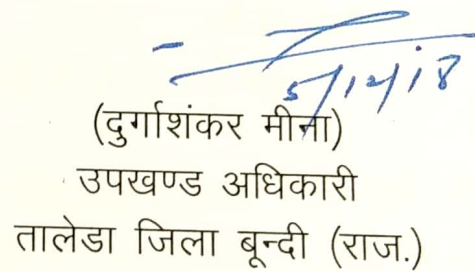 5/12/18
(दुर्गाशंकर मीना)
उपखण्ड अधिकारी
तालेडा जिला बून्दी (राज.)